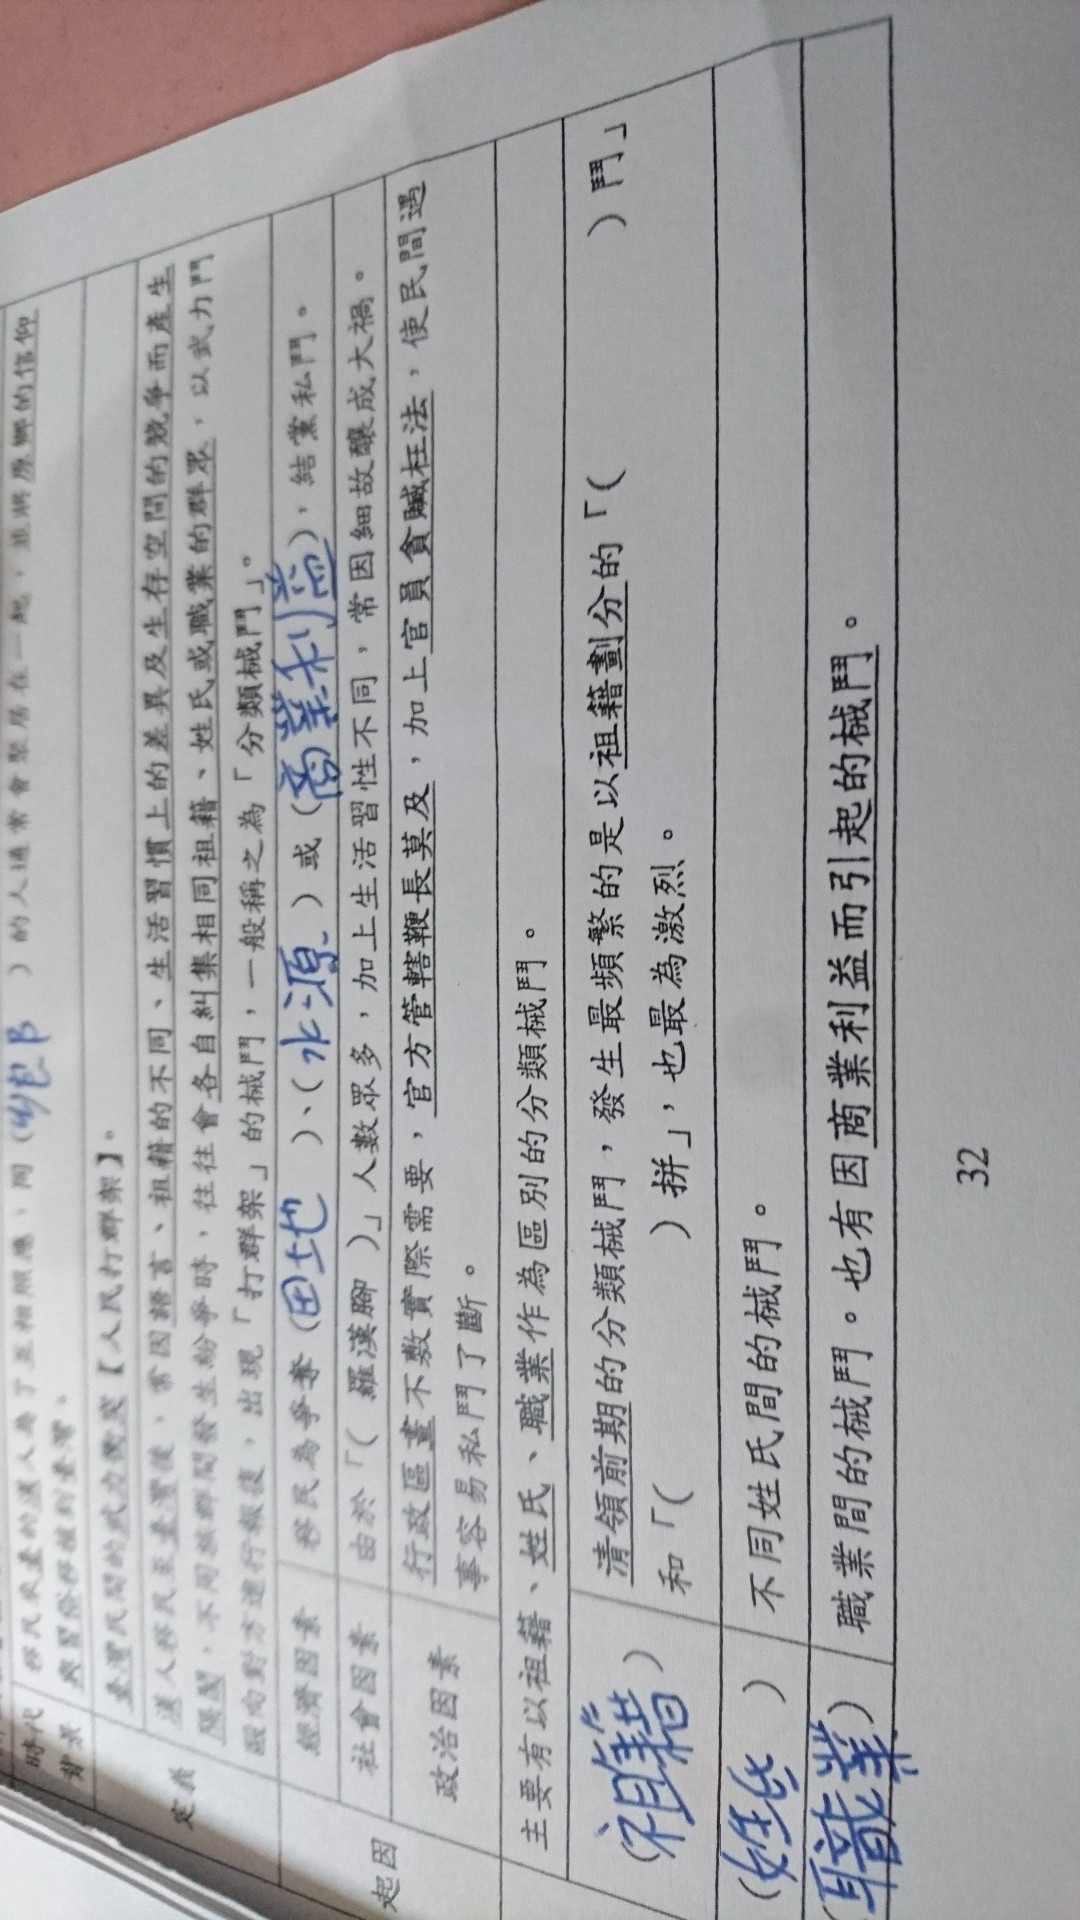 時代背景
移民來臺的漢人為了互相照應，同（鄉邑）的人通常會聚居在一起，並將原鄉的信仰
與習俗移植到臺灣。
定義
臺灣民間的武力衝突【人民打群架】。
漢人移民至臺灣後，常因語言、祖籍的不同、生活習慣上的差異及生存空間的競爭而產生
隔閡，不同族群間發生紛爭時，往往會各自糾集相同祖籍、姓氏或職業的群眾，以武力鬥
毆向對方進行報復，出現「打群架」的械鬥，一般稱之為「分類械鬥」。
起因
經濟因素 移民為爭奪（田地）、（水源）或（商業利益），結黨私鬥。
社會因素 由於「（羅漢腳）」人數眾多，加上生活習性不同，常因細故釀成大禍。
政治因素 行政區畫不敷實際需要，官方管轄鞭長莫及，加上官員貪贓枉法，使民間遇
事容易私鬥了斷。
主要有以祖籍、姓氏、職業作為區別的分類械鬥。
（祖籍） 清領前期的分類械鬥，發生最頻繁的是以祖籍劃分的「（ ）鬥」
和「（ ）拼」，也最為激烈。
（姓氏） 不同姓氏間的械鬥。
（職業） 職業間的械鬥。也有因商業利益而引起的械鬥。
32